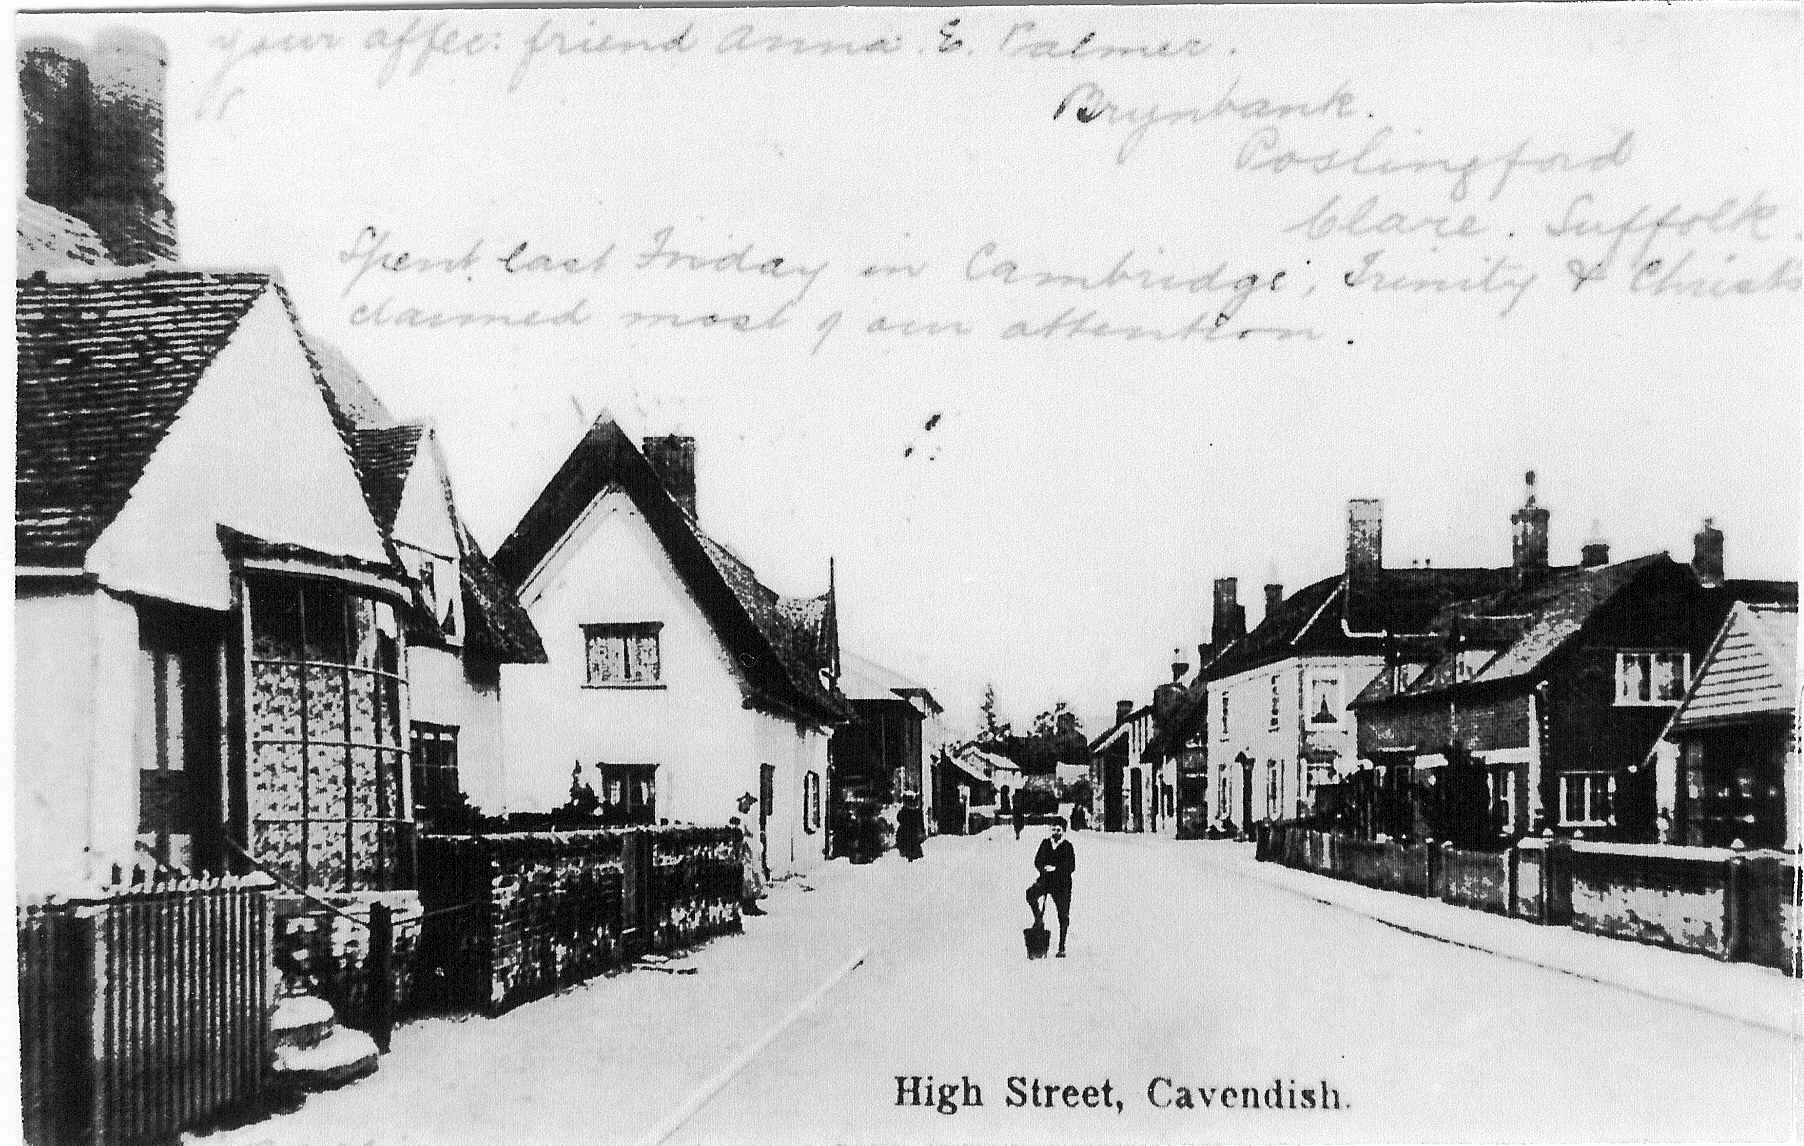 your affec: friend Anna. E. Palmer.
Brynbank.
Poslingford
Clare. Suffolk.
Spent last Friday in Cambridge, Trinity & Christs
claimed most of our attention.
High Street, Cavendish.